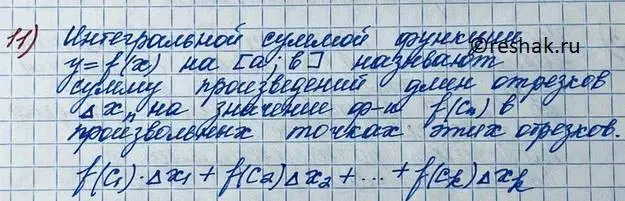 11) Интегральной суммой функции
©reshak.ru
y = f(x) на [a; b] называют
сумму произведений длин отрезков
Δxₙ на значение ф-и f(cₙ) в
произвольных точках этих отрезков.
f(c₁)·Δx₁ + f(c₂)Δx₂ + ... + f(cₖ)Δxₖ